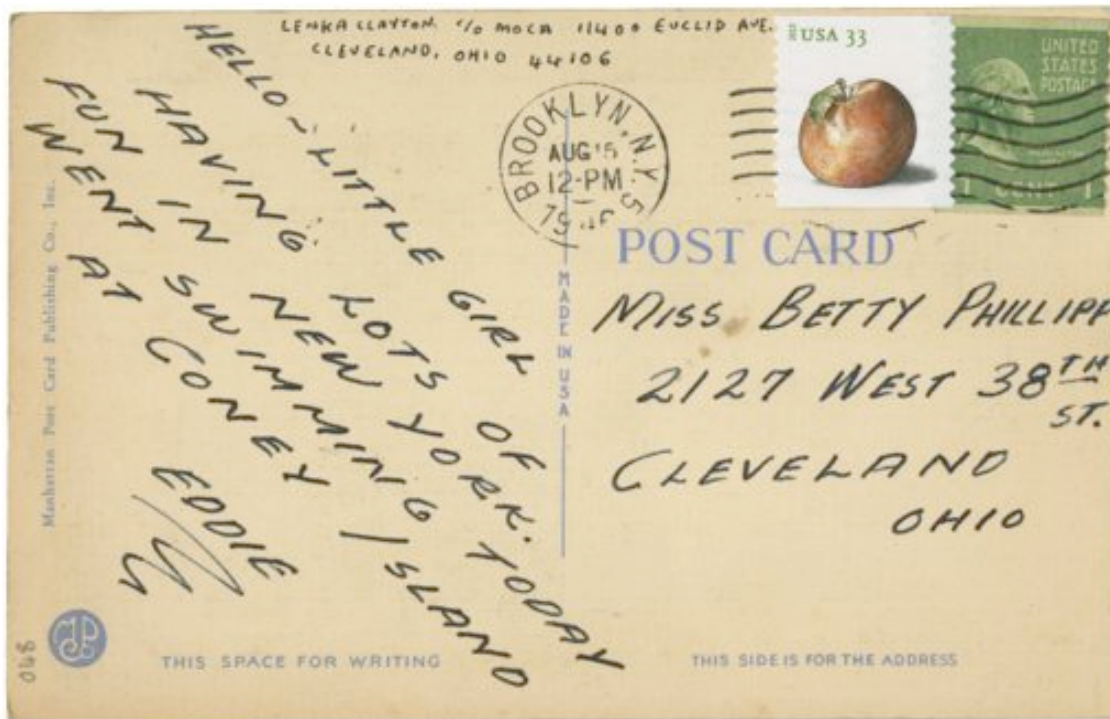 LENKA CLAYTON. c/o MOCA 11400 EUCLID AVE.
CLEVELAND, OHIO 44106
USA 33
UNITED
STATES
POSTAGE
1 CENT 1
BROOKLYN, N.Y.
AUG 15
12-PM
HELLO - LITTLE GIRL
HAVING LOTS OF
FUN IN NEW YORK. TODAY
WENT SWIMMING
AT CONEY ISLAND
EDDIE
POST CARD
MISS BETTY PHILLIPP
2127 WEST 38TH
ST.
CLEVELAND
OHIO
MADE IN USA
Manhattan Post Card Publishing Co., Inc.
048
THIS SPACE FOR WRITING
THIS SIDE IS FOR THE ADDRESS